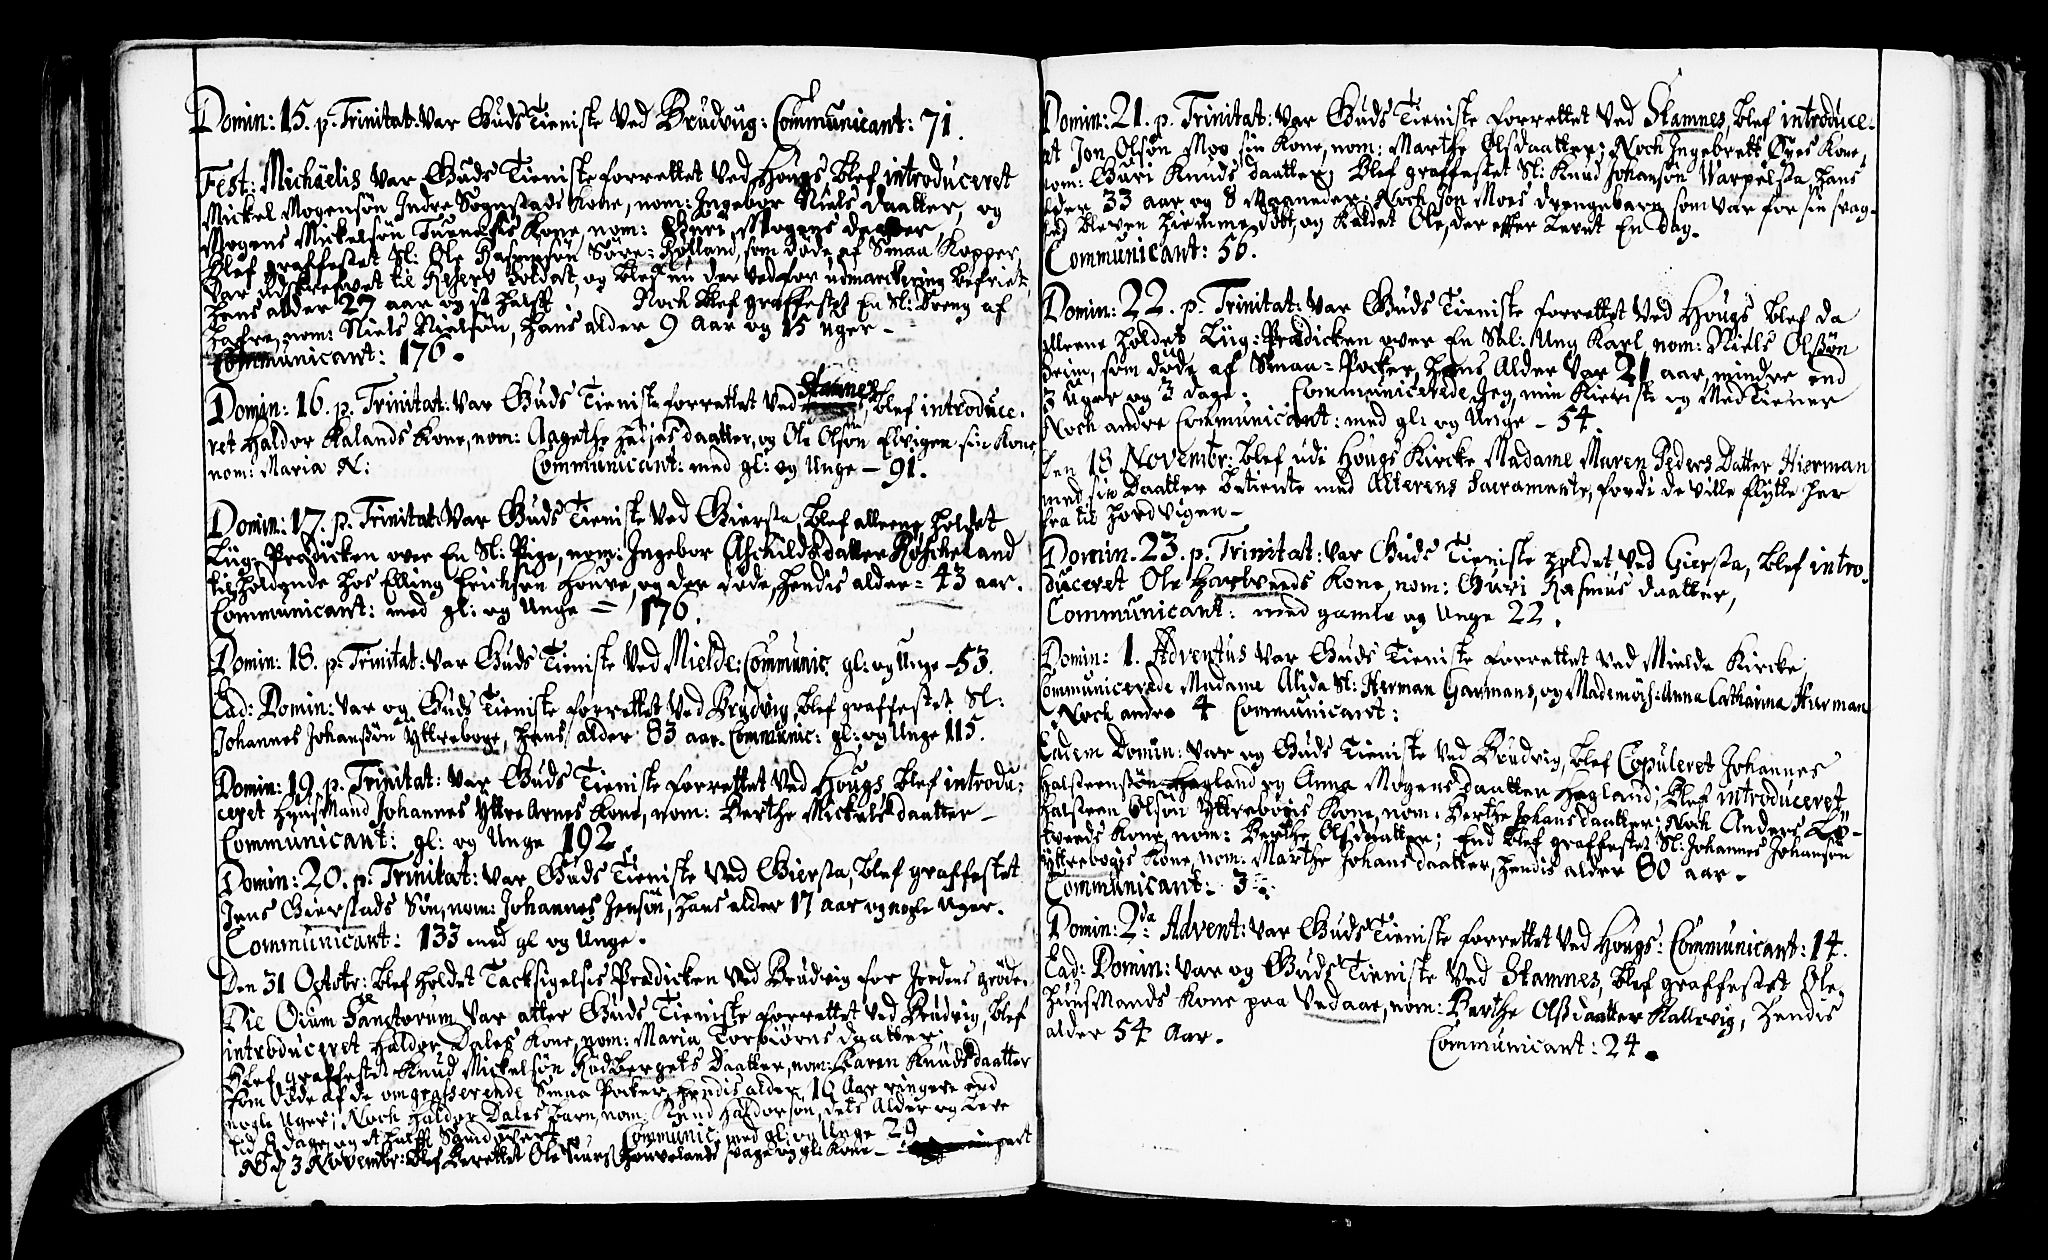 Domin: 15. p. Trinitat: Var Guds Tieniste Ved Brudvig: Communicant: 71.
Fest: Michäelis Var Guds Tieniste forrettet Ved Hougs Blef introduceret
Mickel Mogensøn Indre Sognstads Kone, nom: Ingebor Niels daatter, og
Mogens Mickelsøn Kone, nom: Guri Mogens daatter,
Blef graffestet Sl: Ole Rasmusøn Søre-Rolland, som døde af Smaa Kopper,
Var udskrefvet til Reserv Soldat, og blef nu der ved for udmarchering befriet,
hans alder 27 aar og it halft. Noch blef graffestet En Sl: Dreng af
nom: Niels Nielsøn, hans alder 9 aar og 15 uger -
Communicant: 176.
Domin: 16. p. Trinitat: Var Guds Tieniste forrettet Ved Stamnes, blef introduce-
ret Haldor Kalands Kone, nom: Aagethe daatter, og Ole Olsøn Elvigen sin Kone
nom: Maria N: Communicant: med gl: og Unge - 91.
Domin: 17. p. Trinitat: Var Guds Tieniste Ved Giersta, blef alleene holdet
Liig-Prædicken over En Sl: Pige, nom: Ingebor Aschildsdatter
tilholdende hos Elling Erichsen Houve, og der døde, hendis alder = 43 aar.
Communicant: med gl: og Unge = 176.
Domin: 18. p. Trinitat: Var Guds Tieniste Ved Mielde: Communic: gl: og Unge - 53.
Ead: Domin: Var og Guds Tieniste forrettet Ved Brudvig, blef graffestet Sl:
Johannes Johansøn Yttreboge, hans alder 83 aar. Communic: gl: og Unge 115.
Domin: 19. p. Trinitat: Var Guds Tieniste forrettet Ved Hougs, blef introdu-
ceret HuusMand Johannes Yttre Arnes Kone, nom: Berthe Mickelsdaatter -
Communicant: gl: og Unge 192
Domin: 20. p. Trinitat: Var Guds Tieniste Ved Giersta, blef graffestet
Jens Gierstads Søn, nom: Johannes Jensøn, hans alder 17 aar og nogle Uger.
Communicant: 133 med gl og Unge.
Den 31 Octobr: blef holdet Tacksigelses Prædicken Ved Brudvig for Jordens grøde.
Die Oium Sanctorum Var atter Guds Tieniste forrettet Ved Brudvig, blef
introduceret Haldor Dales Kone, nom: Maria Torbiørns daatter;
Blef graffestet Knud Mickelsøn Daatter, nom: Karen Knudsdaatter
som døde af de omgrasserende Smaa Pocker, hendis alder 16 Aar ringere end
nogle Uger; Noch Haldor Dales barn, nom: Knud Haldorsøn, dets Alder og Leve
tid 8 dage og et halft Communic: med gl: og Unge 29
3 Novembr: blef Berettet Ole svage og gl: Kone -
Domin: 21. p. Trinitat: Var Guds Tieniste forrettet Ved Stamnes, blef introduce-
ret Jon Olsøn Moo sin Kone, nom: Marthe Olsdaatter; Noch Ingebrett Øyes Kone,
nom: Guri Knuds daatter, Blef graffestet Sl: Knud Johansøn hans
alder 33 aar og 8 Maaneder. Noch Jon Moes drengebarn som Var for sin svag-
hed bleven hiemme døbt, og kaldet Ole, der efter levet En dag.
Communicant: 56.
Domin: 22. p. Trinitat: Var Guds Tieniste forrettet Ved Hougs blef da
alleene holdet Liig-Prædicken over En Sal: Ung Karl nom: Niels Olssøn
som døde af Smaa-Pocker, hans Alder Var 21 aar, mindre end
3 Uger og 3 dage; Communicerede Jeg, min Kieriste og Med Tiener
Noch andre Communicant: med gl: og Unge - 54.
Den 18 Novembr: blef udi Hougs Kircke Madame Maren Peders Datter Hierman
med sin Daatter betiente med Alterens Sacramente, fordi de ville flytte her
fra til Hordvigen -
Domin. 23. p. Trinitat: Var Guds Tieniste holdet Ved Giersta, blef intro-
duceret Ole Kone, nom: Guri Rasmus daatter,
Communicant: med gamle og Unge 22.
Domin: 1. Adventus Var Guds Tieniste forrettet Ved Mielde Kircke,
Communicerede Madame Alida Sl: Herman Garmans, og Mademois: Anna Catharina Hierman
Noch andre 4 Communicant:
Eadem Domin: Var og Guds Tieniste Ved Brudvig, blef Copuleret Johannes
Halsteensøn Hagland og Anna Mogensdaatter Hagland; Blef introduceret
Halsteen Olsøn Yttrebogis Kone, nom: Berthe Johansdaatter; Noch Anders
Kone, nom: Berthe Olsdaatter; End blef graffestet Sl: Johannes Johansøn
Yttrebogis Kone, nom: Marthe Johans daatter, hendis alder 80 aar.
Communicant: 3
Domin: 2da Advent: Var Guds Tieniste forrettet Ved Hougs: Communicant: 14.
Ead: Domin: Var og Guds Tieniste Ved Stamnes, blef graffestet Ole
HuusMands Kone paa Vedaae, nom: Berthe Olssdaatter Kallevig, hendis
alder 54 Aar. Communicant: 24.